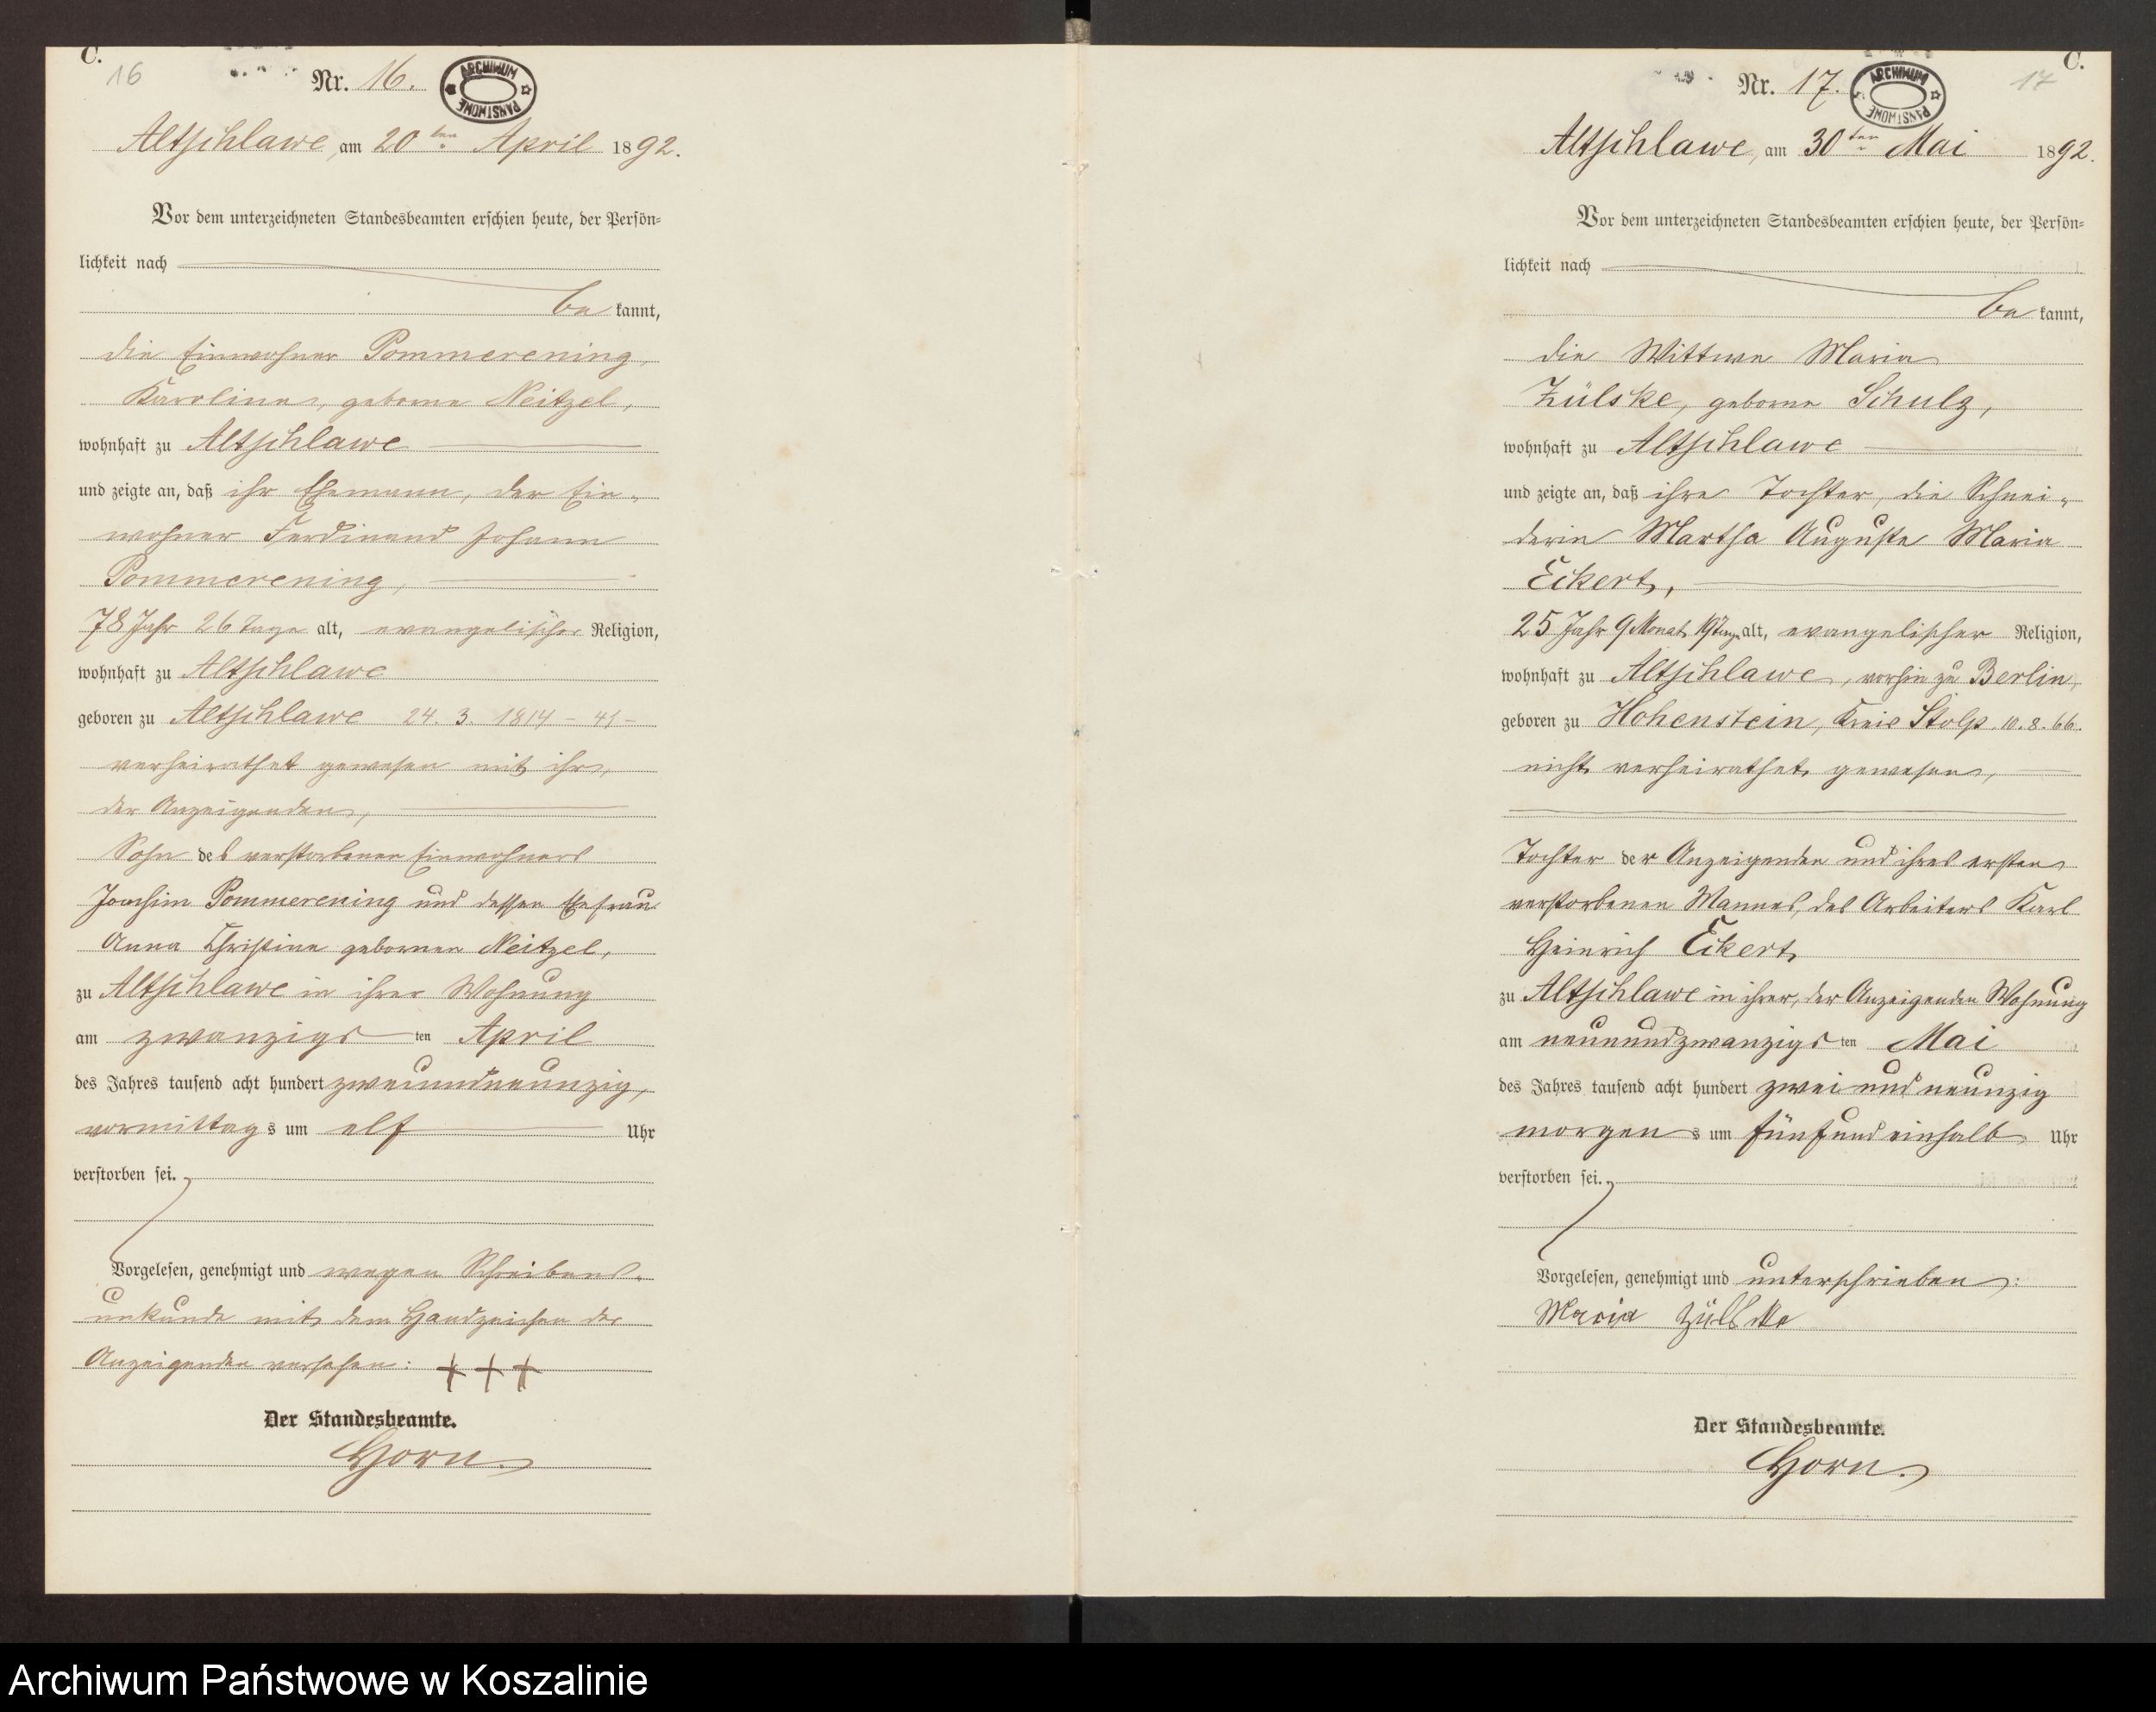 C.
16
Nr. 16.
ARCHIWUM PAŃSTWOWE
Altschlawe, am 20ten April 1892.
Vor dem unterzeichneten Standesbeamten erschien heute, der Persön-
lichkeit nach
be kannt,
die Einwohner Pommerening,
Karoline, geborne Neitzel,
wohnhaft zu Altschlawe
und zeigte an, daß ihr Ehemann, der Ein-
wohner Ferdinand Johann
Pommerening,
78 Jahr 26 Tage alt, evangelischer Religion,
wohnhaft zu Altschlawe
geboren zu Altschlawe 24. 3. 1814 - 41 -
verheirathet gewesen mit ihr,
der Anzeigenden,
Sohn des verstorbenen Einwohners
Joachim Pommerening und dessen Ehefrau
Anna Christine gebornen Neitzel,
zu Altschlawe in ihrer Wohnung
am zwanzigsten April
des Jahres tausend acht hundert zweiundneunzig,
vormittags um elf Uhr
verstorben sei.
Vorgelesen, genehmigt und wegen Schreibens-
unkunde mit dem Handzeichen der
Anzeigenden versehen: + + +
Der Standesbeamte.
Horn.
C.
17
Nr. 17.
ARCHIWUM PAŃSTWOWE
Altschlawe, am 30ten Mai 1892.
Vor dem unterzeichneten Standesbeamten erschien heute, der Persön-
lichkeit nach
be kannt,
die Wittwe Maria
Zülske, geborne Schulz,
wohnhaft zu Altschlawe
und zeigte an, daß ihre Tochter, die Schnei-
derin Martha Auguste Maria
Eckert,
25 Jahr 9 Monat 19 Tage alt, evangelischer Religion,
wohnhaft zu Altschlawe, vorhin zu Berlin,
geboren zu Hohenstein, Kreis Stolp. 10. 8. 66.
nicht verheirathet gewesen,
Tochter der Anzeigenden und ihres ersten
verstorbenen Mannes, des Arbeiters Karl
Heinrich Eckert
zu Altschlawe in ihrer, der Anzeigenden Wohnung
am neunundzwanzigsten Mai
des Jahres tausend acht hundert zwei und neunzig
morgens um fünfundeinhalb Uhr
verstorben sei.
Vorgelesen, genehmigt und unterschrieben:
Maria Zülske
Der Standesbeamte.
Horn.
Archiwum Państwowe w Koszalinie